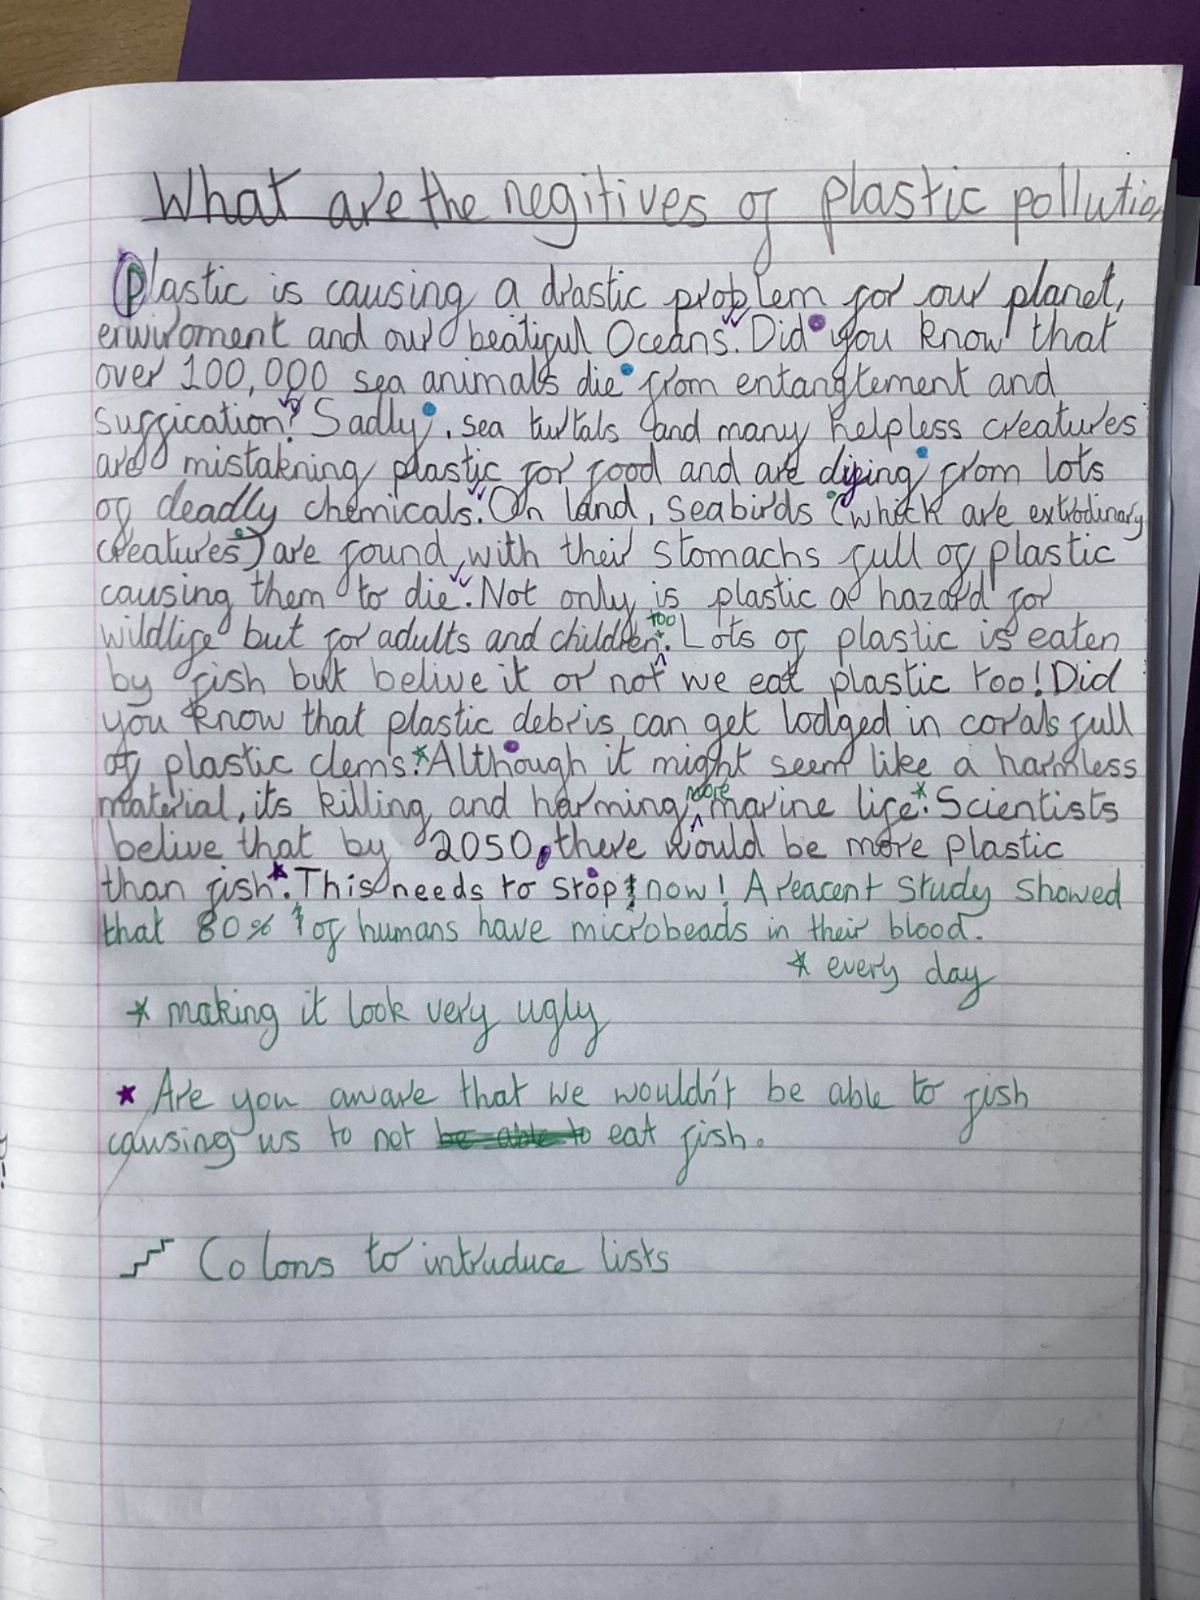 What are the negitives of plastic pollution
Plastic is causing a drastic problem for our planet,
enviroment and our beatiful Oceans. Did you know that
over 100,000 sea animals die from entanglement and
suffication? Sadly, sea turtals and many helpless creatures
are mistakning plastic for food and are dying from lots
of deadly chemicals. On land, seabirds (which are extrodinary
creatures) are found with their stomachs full of plastic
causing them to die. Not only is plastic a hazard for
too
wildlife but for adults and children. Lots of plastic is eaten
by fish but belive it or not we eat plastic too! Did
you know that plastic debris can get lodged in corals full
of plastic clems?*Although it might seem like a harmless
more
material, its killing and harming marine life*. Scientists
belive that by 2050, there would be more plastic
than fish*. This needs to stop now! A reacent study showed
that 80% of humans have microbeads in their blood.
* every day
* making it look very ugly
* Are you aware that we wouldn't be able to fish
causing us to not be able to eat fish.
Colons to intruduce lists